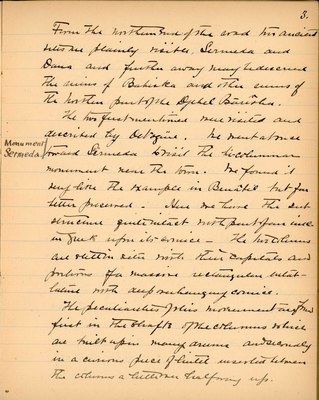 3.
From the northern end of the road two ancient
sites are plainly visible, Sermeda and
Dana and further away may be discerned
the ruins of Babiska and other ruins of
the northern part of the Djebel Barisha.
The two first mentioned were visited and
described by De Vogüé. We went at once
Monument
Sermeda.
toward Sermeda to visit the bicolumnar
monument near the town. We found it
very like the example in Benabil but far
better preserved. Here we have the
structure quite intact with part of an
in Greek upon its cornice — The two columns
are still in situ with their capitals and
portions of a massive rectangular entab-
lature with deep overhanging cornice.
The peculiarities of this monument are
first in the shafts of the columns which
are built up in many drums and secondly
in a curious piece of lintel inserted between
the columns a little over half way up.